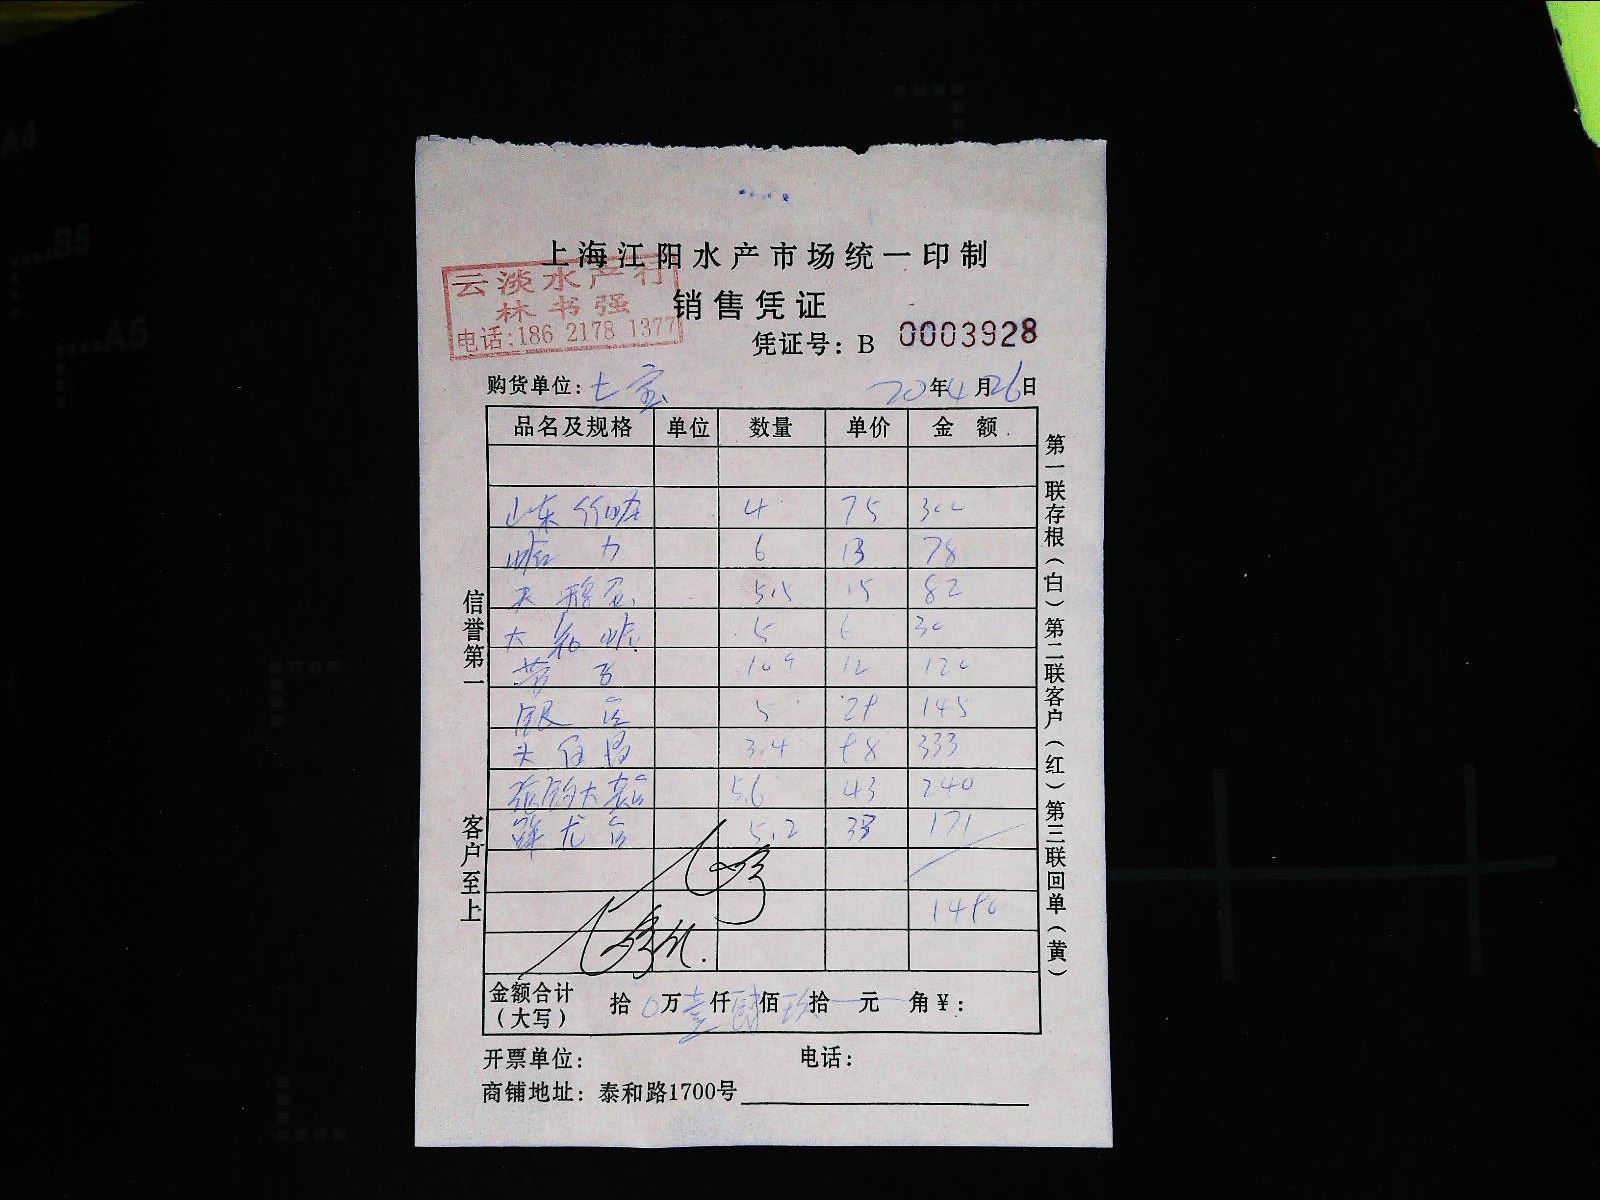 上海江阳水产市场统一印制
云淡水产行
林书强
电话:186 2178 1377
销售凭证
凭证号: B 0003928
购货单位: 七宝 20年4月26日
品名及规格 单位 数量 单价 金额
山东 4 75 300
力 6 13 78
5.5 15 82
大 5 6 30
12 120
银 5 29 145
3.4 98 333
大 5.6 43 240
龙 5.2 33 171
1490
金额合计(大写) 拾0万壹仟肆佰玖拾 元 角¥:
开票单位: 电话:
商铺地址: 泰和路1700号
信誉第一
客户至上
第一联存根(白)第二联客户(红)第三联回单(黄)
A4
B5
A5